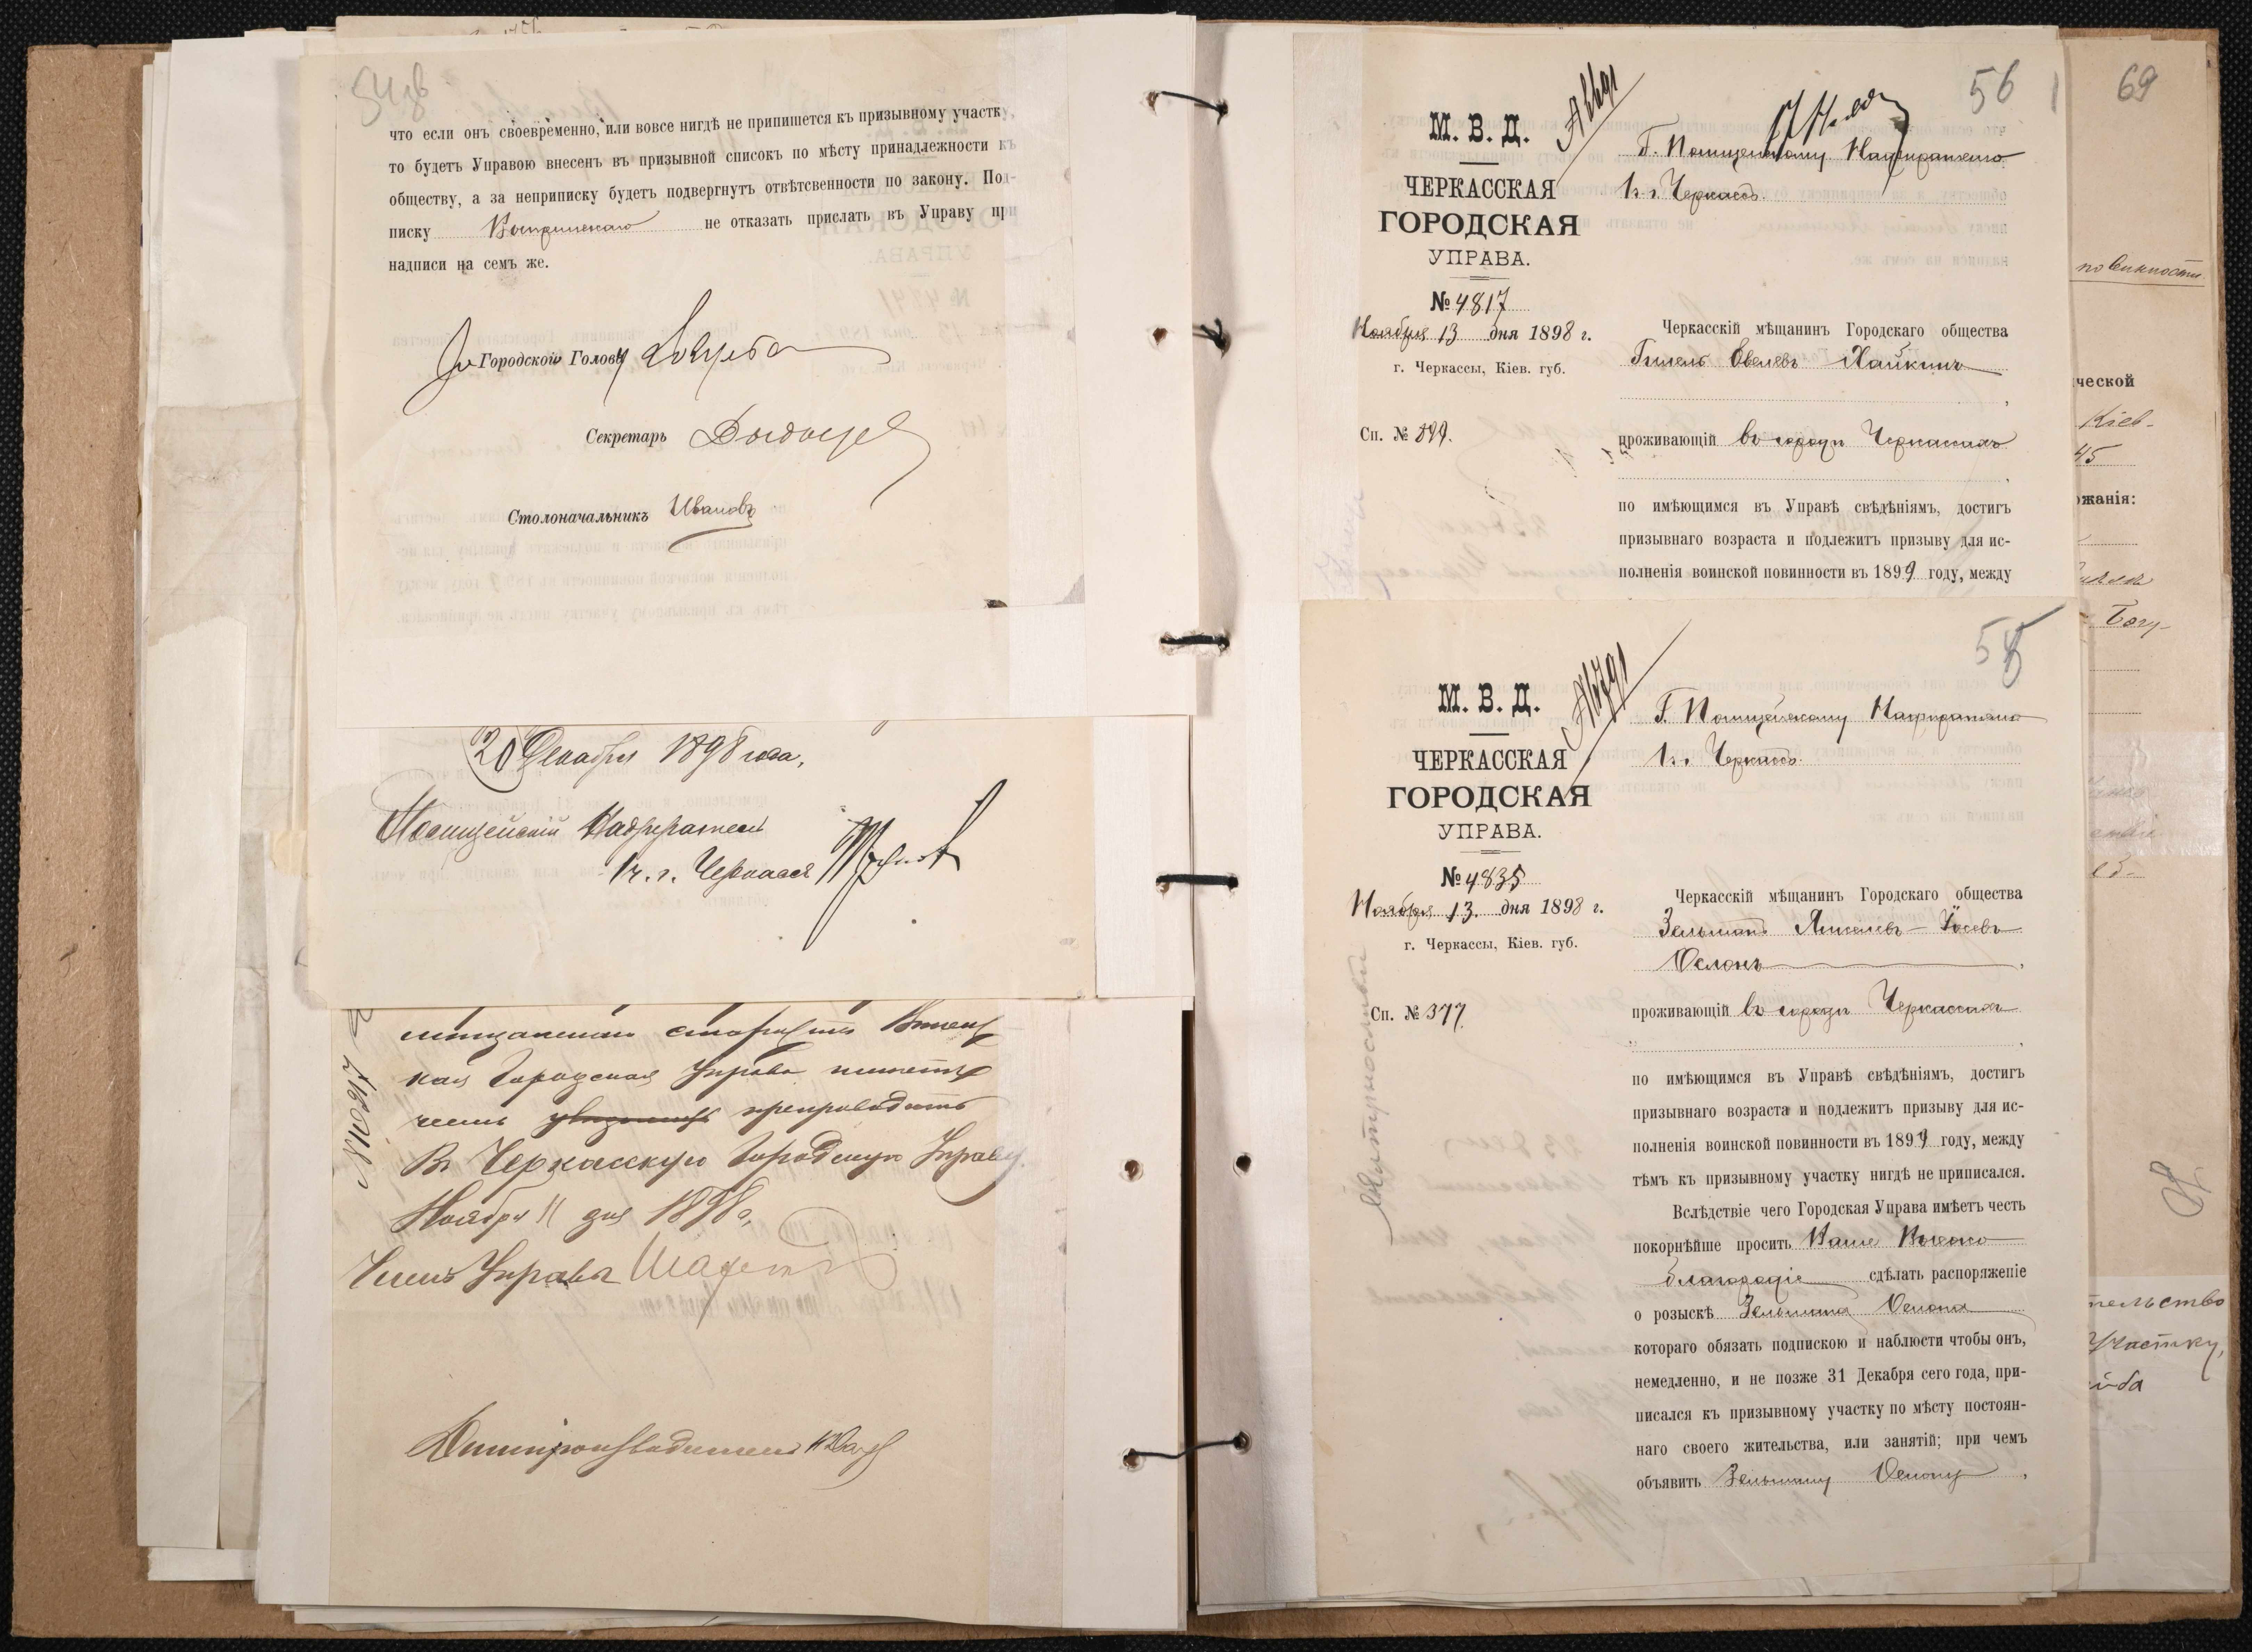 54об
что если онъ своевременно, или вовсе нигдѣ не припишется къ призывному участку,
то будетъ Управою внесенъ въ призывной списокъ по мѣсту принадлежности къ
обществу, а за неприписку будетъ подвергнутъ отвѣтсвенности по закону. Под-
писку не отказать прислать въ Управу при
надписи на семъ же.
За Городской Голову
Секретарь
Столоначальникъ Ивановъ
20 Декабря 1898 года,
Полицейскій Надзиратель
1 ч. г. Черкассъ
мѣщанскій
кая Городская Управа имѣетъ
честь препроводить
Въ Черкасскую Городскую Управу.
Ноября 11 дня 1898 г.
Членъ Управы
Дѣлопроизводитель
56
М. В. Д.
ЧЕРКАССКАЯ
ГОРОДСКАЯ
УПРАВА.
№ 4817
Ноября 13 дня 1898 г.
г. Черкассы, Кіев. губ.
Сп. №
Г. Полицейскому Надзирателю
1 ч. г. Черкассъ.
Черкасскій мѣщанинъ Городскаго общества
Гилель Евелевъ Хайкинъ
проживающій въ городѣ Черкассахъ
по имѣющимся въ Управѣ свѣдѣніямъ, достигъ
призывнаго возраста и подлежитъ призыву для ис-
полненія воинской повинности въ 1899 году, между
58
М. В. Д.
ЧЕРКАССКАЯ
ГОРОДСКАЯ
УПРАВА.
№ 4835
Ноября 13 дня 1898 г.
г. Черкассы, Кіев. губ.
Сп. № 377.
Г. Полицейскому Надзирателю
1 ч. Черкассъ.
Черкасскій мѣщанинъ Городскаго общества
Зельманъ Янкелевъ-Іосевъ
Ослонъ
проживающій въ городѣ Черкассахъ
по имѣющимся въ Управѣ свѣдѣніямъ, достигъ
призывнаго возраста и подлежитъ призыву для ис-
полненія воинской повинности въ 1899 году, между
тѣмъ къ призывному участку нигдѣ не приписался.
Вслѣдствіе чего Городская Управа имѣетъ честь
покорнѣйше просить Ваше Высоко
благородіе сдѣлать распоряженіе
о розыскѣ Зельмана Ослона
котораго обязать подпискою и наблюсти чтобы онъ,
немедленно, и не позже 31 Декабря сего года, при-
писался къ призывному участку по мѣсту постоян-
наго своего жительства, или занятій; при чемъ
объявить Зельману Ослону,
69
повинности
ческой
Кіев-
45
жанія:
Богу-
тельство
участку,